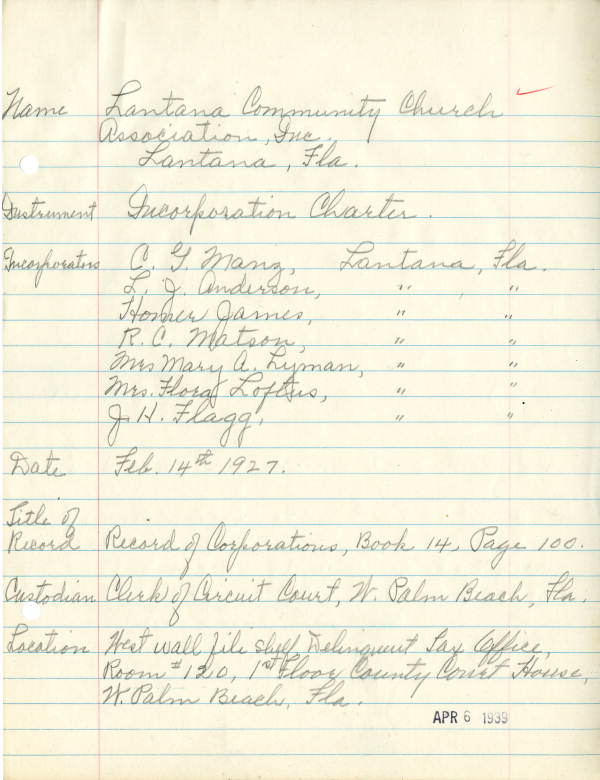 Name Lantana Community Church
Association, Inc.
Lantana, Fla.
Instrument Incorporation Charter.
Incorporators C. G. Manz, Lantana, Fla.
L. J. Anderson, " , "
Homer James, " "
R. C. Matson, " "
Mrs Mary A. Lyman, " "
Mrs. Flora Loftus, " "
J. H. Flagg, " "
Date Feb. 14th 1927.
Title of
Record Record of Corporations, Book 14, Page 100.
Custodian Clerk of Circuit Court, W. Palm Beach, Fla.
Location West wall file shelf Delinquent Tax Office,
Room #120, 1st Floor County Court House,
W. Palm Beach, Fla.
APR 6 1939